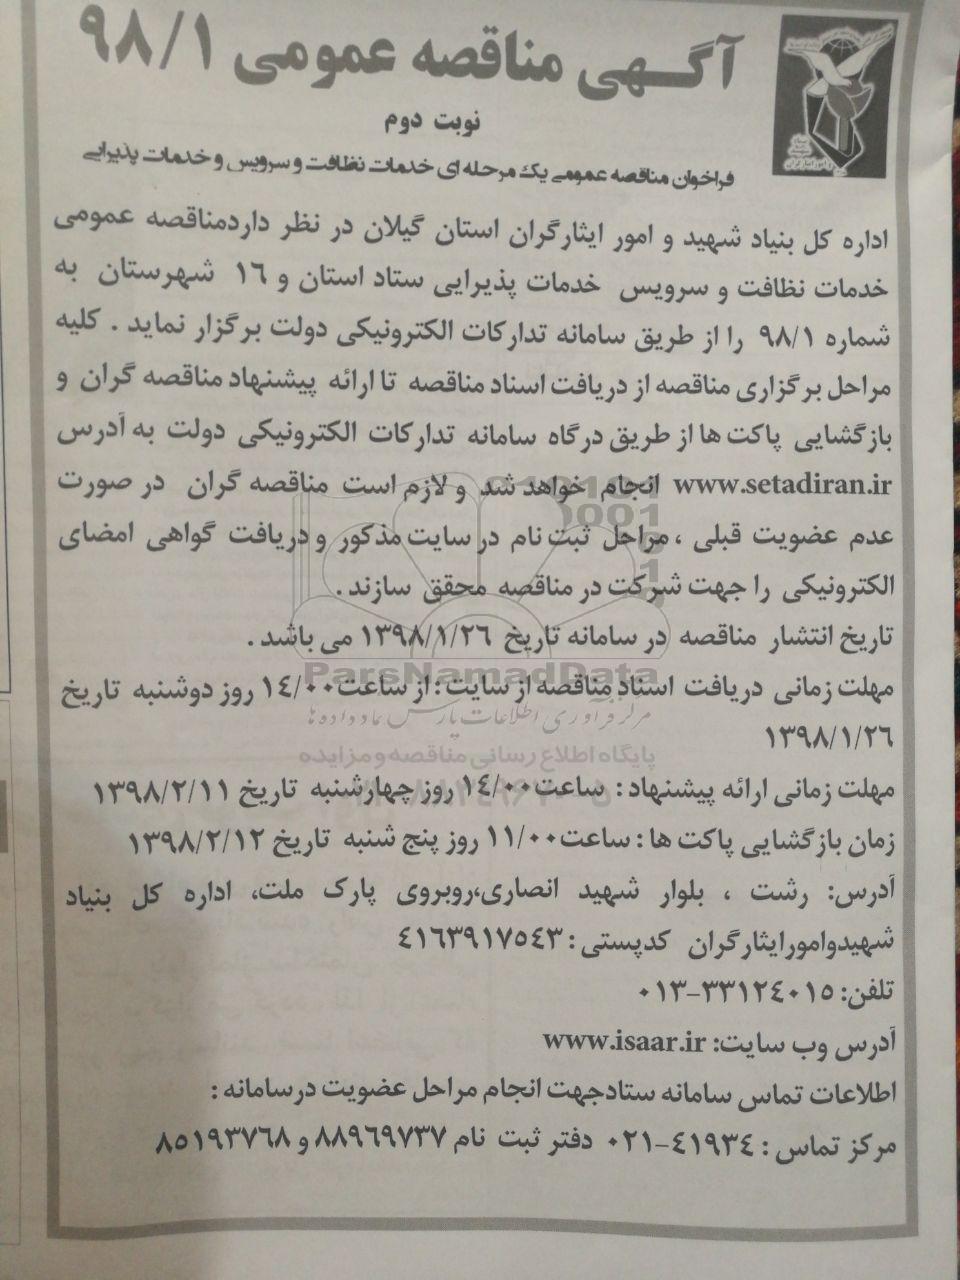 آگهی مناقصه عمومی ۹۸/۱
نوبت دوم
فراخوان مناقصه عمومی یک مرحله ای خدمات نظافت و سرویس و خدمات پذیرایی
اداره کل بنیاد شهید و امور ایثارگران استان گیلان در نظر داردمناقصه عمومی
خدمات نظافت و سرویس خدمات پذیرایی ستاد استان و ۱۶ شهرستان به
شماره ۹۸/۱ را از طریق سامانه تدارکات الکترونیکی دولت برگزار نماید . کلیه
مراحل برگزاری مناقصه از دریافت اسناد مناقصه تا ارائه پیشنهاد مناقصه گران و
بازگشایی پاکت ها از طریق درگاه سامانه تدارکات الکترونیکی دولت به آدرس
www.setadiran.ir انجام خواهد شد و لازم است مناقصه گران در صورت
عدم عضویت قبلی ، مراحل ثبت نام در سایت مذکور و دریافت گواهی امضای
الکترونیکی را جهت شرکت در مناقصه محقق سازند .
تاریخ انتشار مناقصه در سامانه تاریخ ۱۳۹۸/۱/۲۶ می باشد .
ParsNamadData
مهلت زمانی دریافت اسناد مناقصه از سایت : از ساعت ۱۴/۰۰ روز دوشنبه تاریخ
مرکز فرآوری اطلاعات پارس نماد داده ها
۱۳۹۸/۱/۲۶
پایگاه اطلاع رسانی مناقصه و مزایده
مهلت زمانی ارائه پیشنهاد : ساعت ۱۴/۰۰ روز چهارشنبه تاریخ ۱۳۹۸/۲/۱۱
زمان بازگشایی پاکت ها : ساعت ۱۱/۰۰ روز پنج شنبه تاریخ ۱۳۹۸/۲/۱۲
آدرس: رشت ، بلوار شهید انصاری،روبروی پارک ملت، اداره کل بنیاد
شهیدوامورایثارگران کدپستی : ۴۱۶۳۹۱۷۵۴۳
تلفن: ۳۳۱۲۴۰۱۵-۰۱۳
آدرس وب سایت: www.isaar.ir
اطلاعات تماس سامانه ستادجهت انجام مراحل عضویت درسامانه :
مرکز تماس : ۴۱۹۳۴-۰۲۱ دفتر ثبت نام ۸۸۹۶۹۷۳۷ و ۸۵۱۹۳۷۶۸